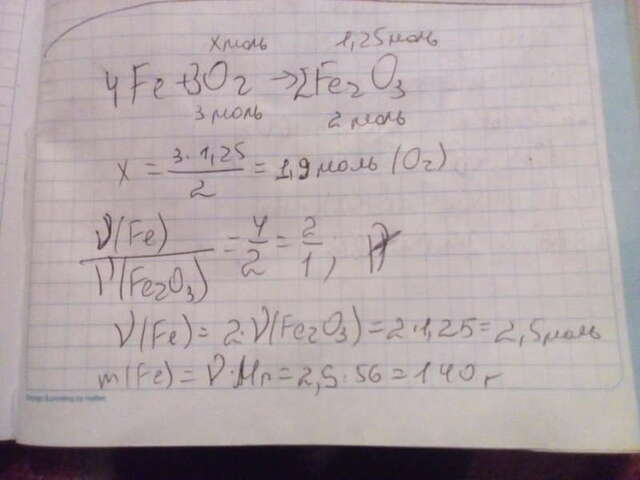 x моль 1,25 моль
4Fe + 3O2 → 2Fe2O3
3 моль 2 моль
x = 3·1,25/2 = 1,9 моль (O2)
ν(Fe)/ν(Fe2O3) = 4/2 = 2/1;
ν(Fe) = 2·ν(Fe2O3) = 2·1,25 = 2,5 моль
m(Fe) = ν·Mr = 2,5·56 = 140 г